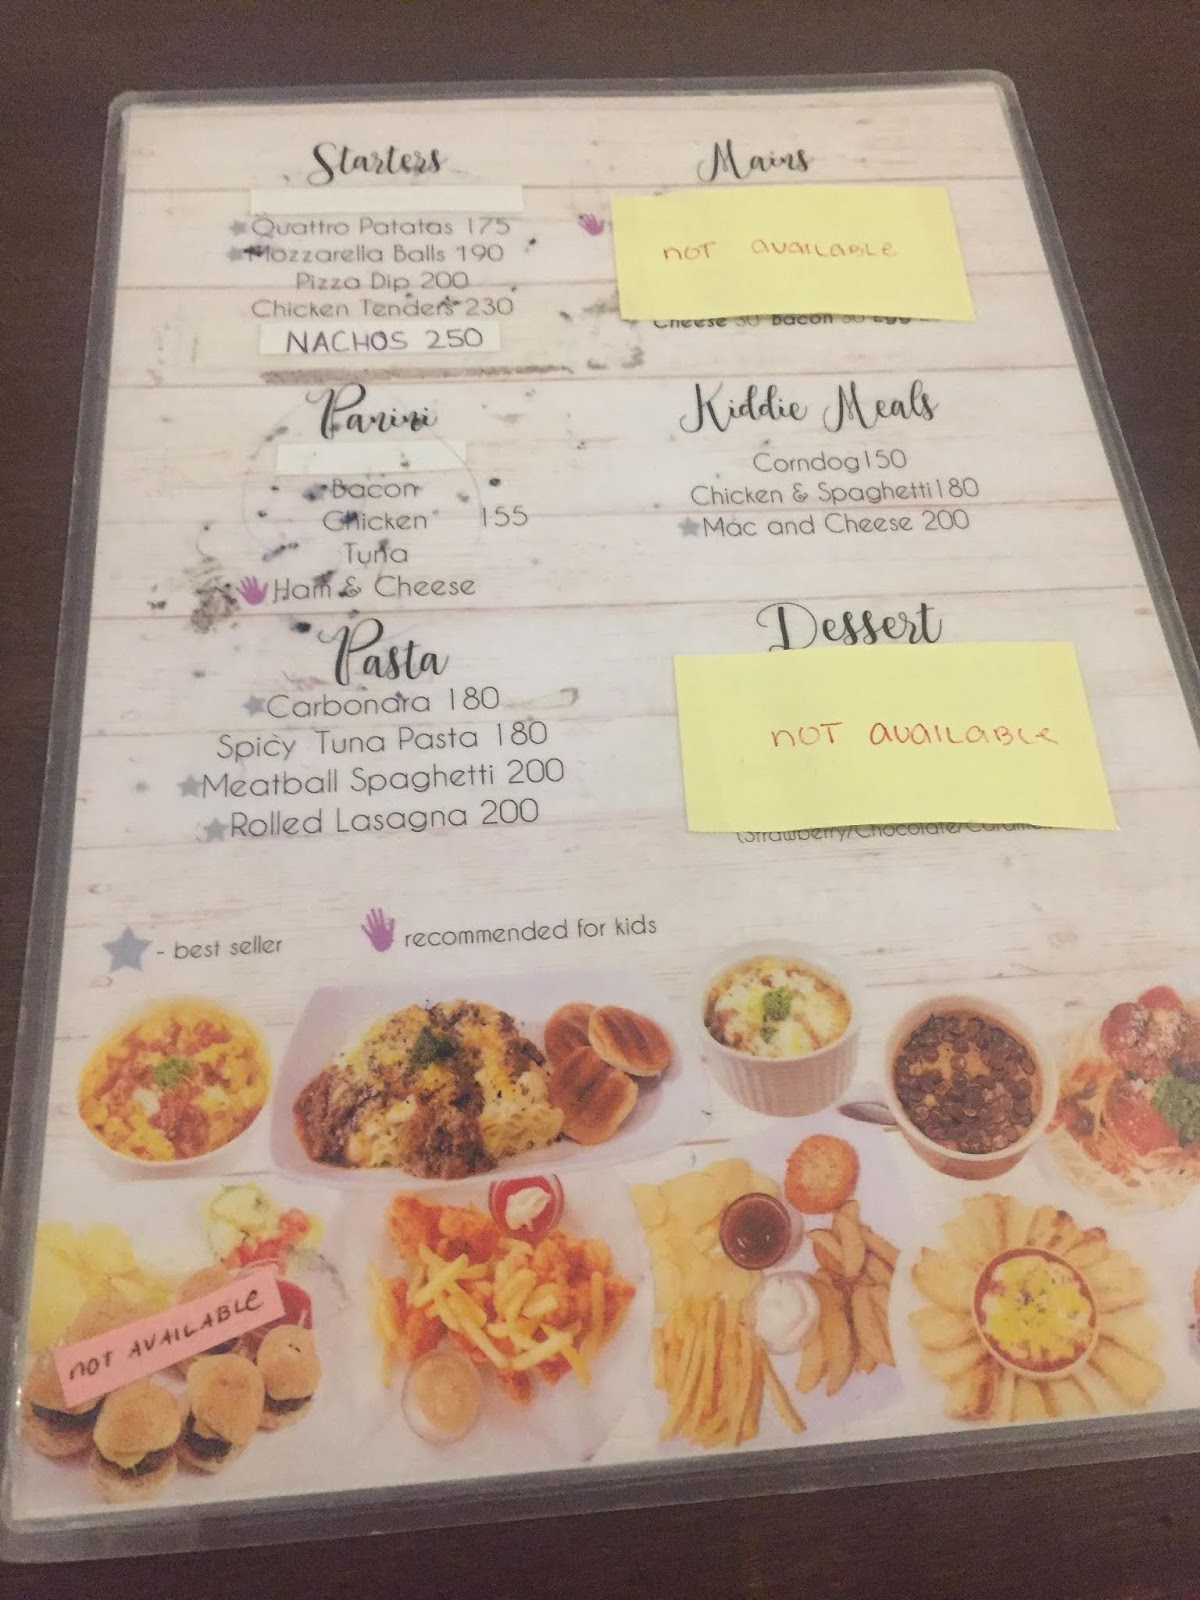 Starters
Quattro Patatas 175
Mozzarella Balls 190
Pizza Dip 200
Chicken Tenders 230
NACHOS 250
Panini
Bacon
Chicken 155
Tuna
Ham & Cheese
Pasta
Carbonara 180
Spicy Tuna Pasta 180
Meatball Spaghetti 200
Rolled Lasagna 200
Mains
NOT AVAILABLE
Cheese 30 Bacon 30 Egg
Kiddie Meals
Corndog 150
Chicken & Spaghetti 180
Mac and Cheese 200
Dessert
NOT AVAILABLE
(Strawberry/Chocolate/
- best seller
recommended for kids
NOT AVAILABLE